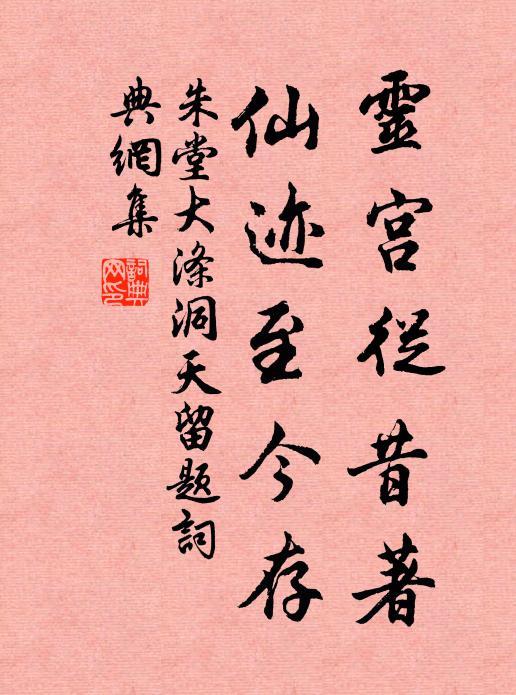 靈宮從昔著
仙迹至今存
朱堂大滌洞天留題詞
典網集
詞典
网印